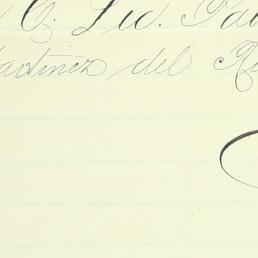 C. Lic. Pa
artinez del R